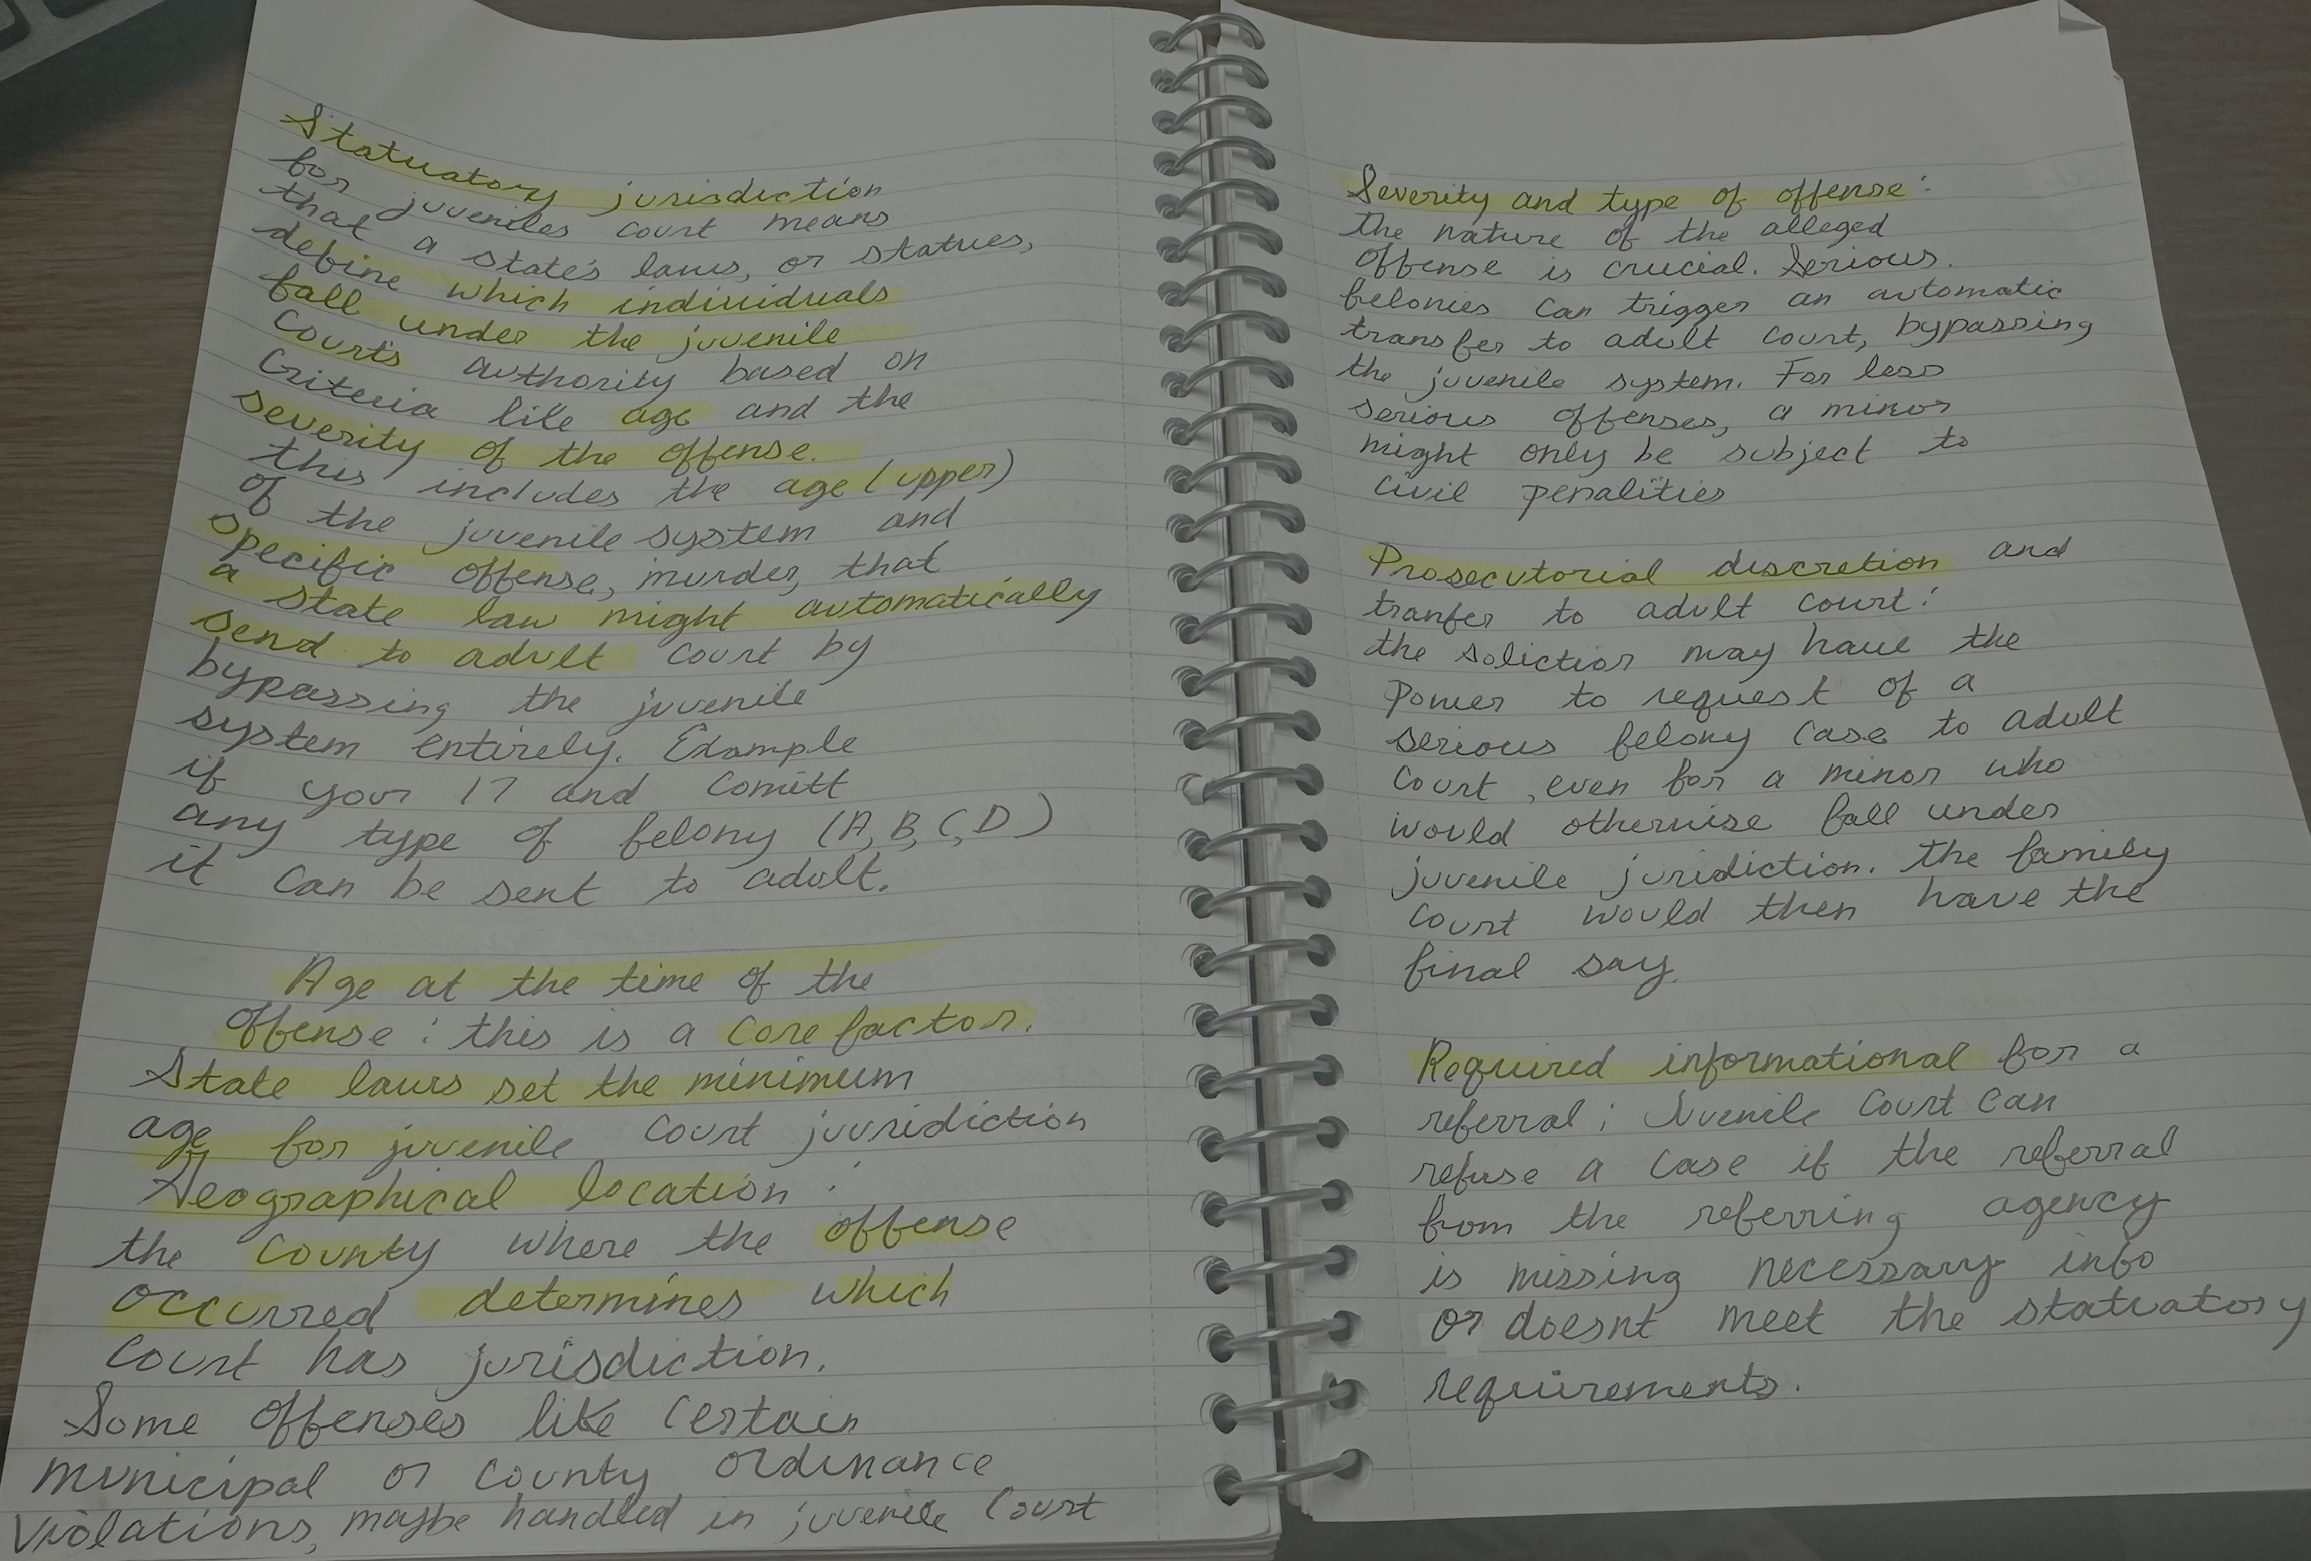 Statuatory jurisdiction
for juveniles court means
that a state's laws, or statues,
define which individuals
fall under the juvenile
courts authority based on
criteria like age and the
severity of the offense.
this includes the age (upper)
of the juvenile system and
specific offense, murder, that
a state law might automatically
send to adult court by
bypassing the juvenile
system entirely. Example
if your 17 and comitt
any type of felony (A, B, C, D)
it can be sent to adult.
Age at the time of the
offense : this is a core factor.
State laws set the minimum
age for juvenile court juvridiction
Geographical location :
the county where the offense
occurred determines which
court has jurisdiction.
Some offenses like certain
municipal or county ordinance
violations, maybe handled in juvenile court
Severity and type of offense :
the nature of the alleged
offense is crucial. Serious.
felonies can trigger an automatic
transfer to adult court, bypassing
the juvenile system. For less
serious offenses, a minor
might only be subject to
civil penalities
Prosecutorial discretion and
tranfer to adult court :
the solictior may have the
power to request of a
serious felony case to adult
court, even for a minor who
would otherwise fall under
juvenile juridiction. The family
court would then have the
final say.
Required informational for a
referral ; Juvenile court can
refuse a case if the referral
from the referring agency
is missing necessary info
or doesnt meet the statuatory
requirements.